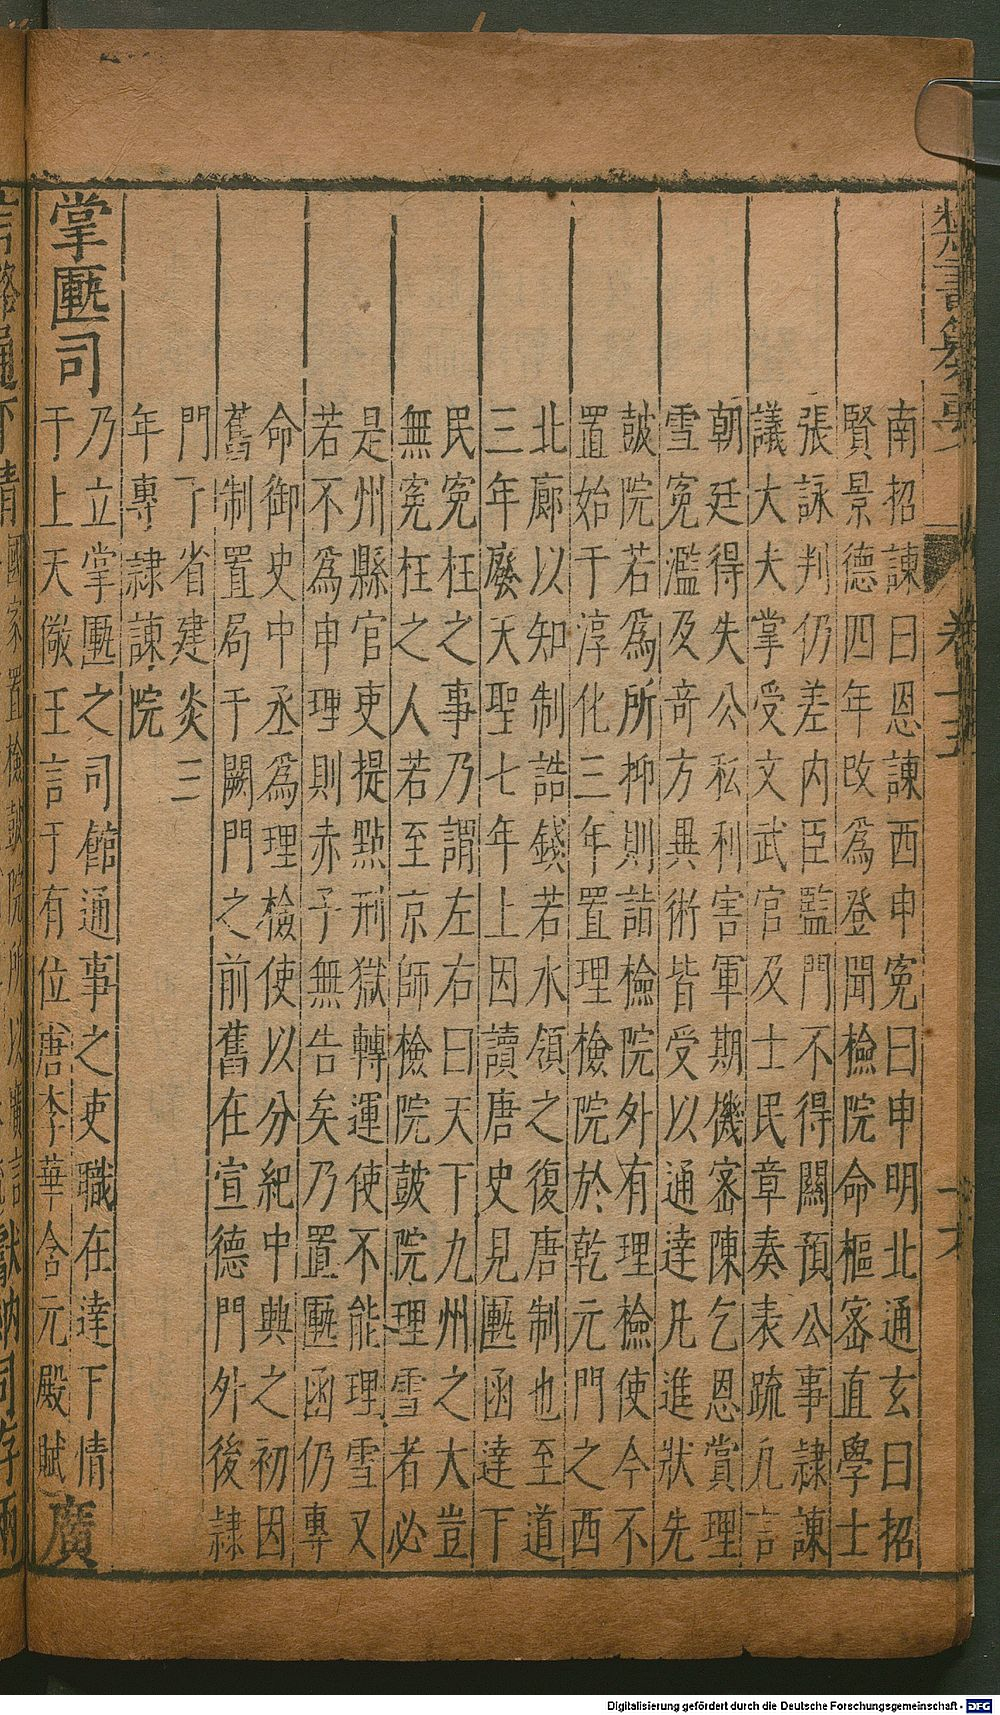 類書纂要
卷十五
南招諫曰恩諫西申冤曰申明北通玄曰招
賢景德四年改爲登聞檢院命樞密直學士
張詠判仍差内臣監門不得關預公事隷諫
議大夫掌受文武官及士民章奏表疏凡言
朝廷得失公私利害軍期機密陳乞恩賞理
雪冤濫及奇方異術皆受以通達凡進狀先
鼓院若爲所抑則詣檢院外有理檢使今不
置始于淳化三年置理檢院於乾元門之西
北廊以知制誥錢若水領之復唐制也至道
三年廢天聖七年上因讀唐史見匭函達下
民冤枉之事乃謂左右曰天下九州之大豈
無冤枉之人若至京師檢院鼓院理雪者必
是州縣官吏提點刑獄轉運使不能理雪又
若不爲申理則赤子無告矣乃置匭函仍專
命御史中丞爲理檢使以分紀中典之初因
舊制置局于闕門之前舊在宣德門外後隷
門了省建炎三
年專隷諫院
掌匭司
乃立掌匭之司館通事之吏職在達下情
于上天儆王言于有位唐李華含元殿賦
廣
Digitalisierung gefördert durch die Deutsche Forschungsgemeinschaft - DFG